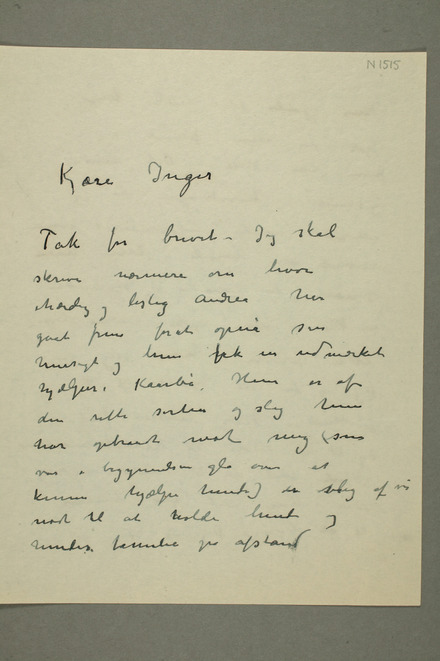 N 1515
Kjære Inger
Tak for brevet – Jeg skal
skrive nærmere om hvor
og listig Andrea har
gaat frem forat opnaa sin
hensigt og hun fik en udmærket
hjælper i Kaarbø. Hun er af
den rette sorten og slig hun
har optraadt mot mig (som
var i begyndelsen gla over at
kunne hjælpe hende) er jeg af vis
nødt til at holde hende og
hendes familie paa afstand